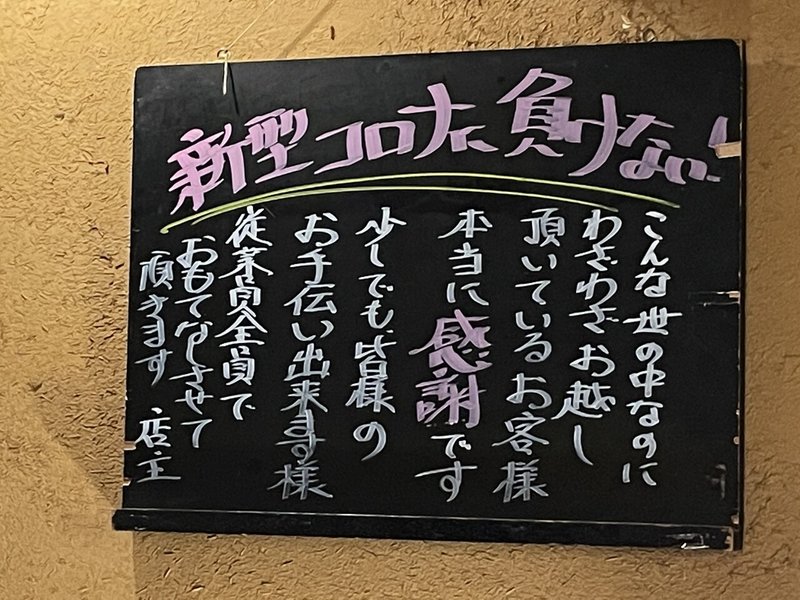 新型コロナに負けない!
こんな世の中なのに
わざわざお越し
頂いているお客様
本当に感謝です
少しでも皆様の
お手伝い出来ます様
従業員全員で
おもてなしさせて
頂きます 店主